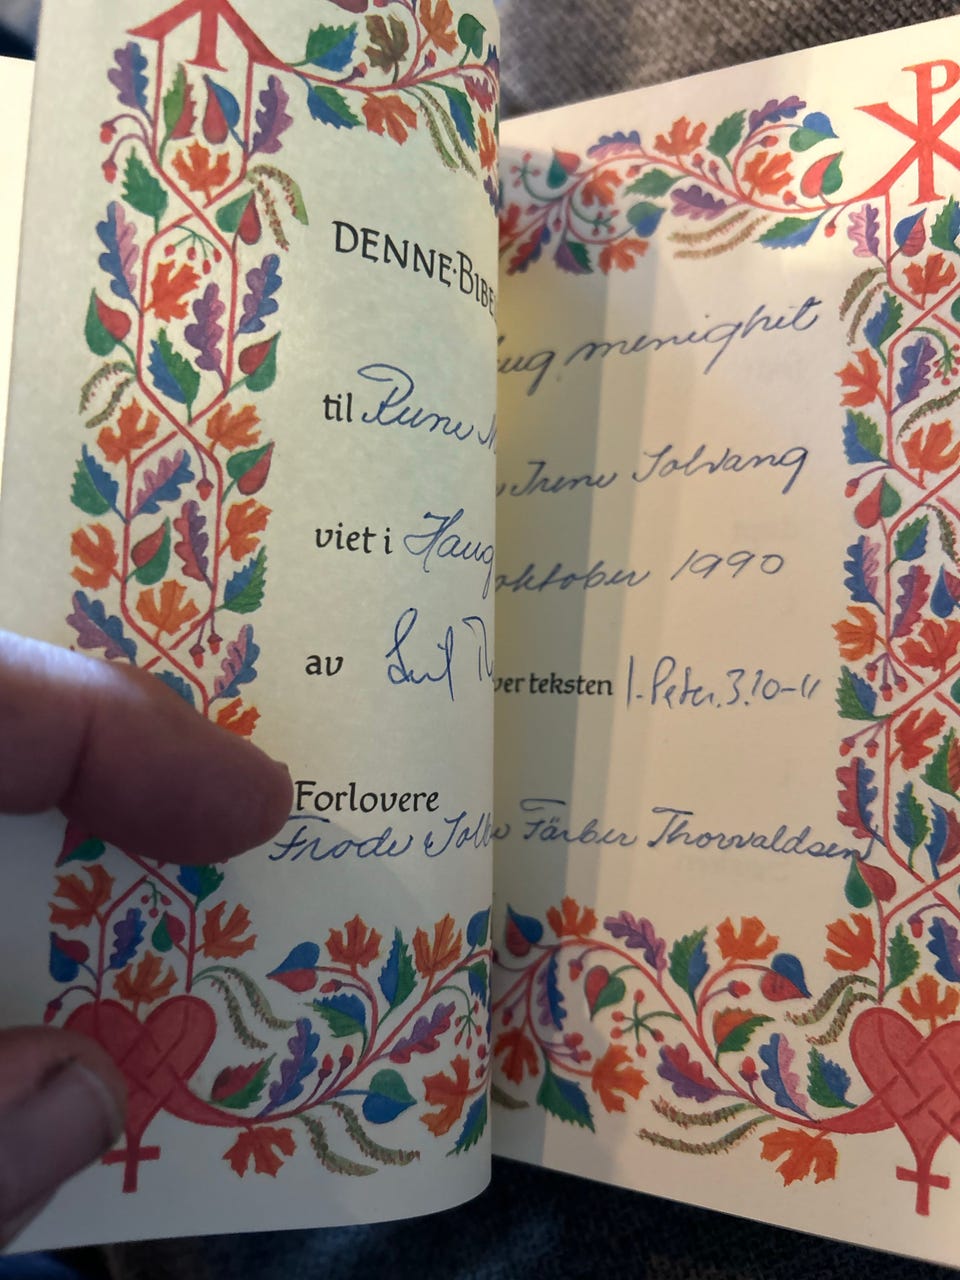 DENNE·BIBE
ug menighet
til Rune
Irene Solvang
viet i Haug
oktober 1990
av
ver teksten 1. Peter. 3.10-11
Forlovere
Frode Solb Färber Thorvaldsen